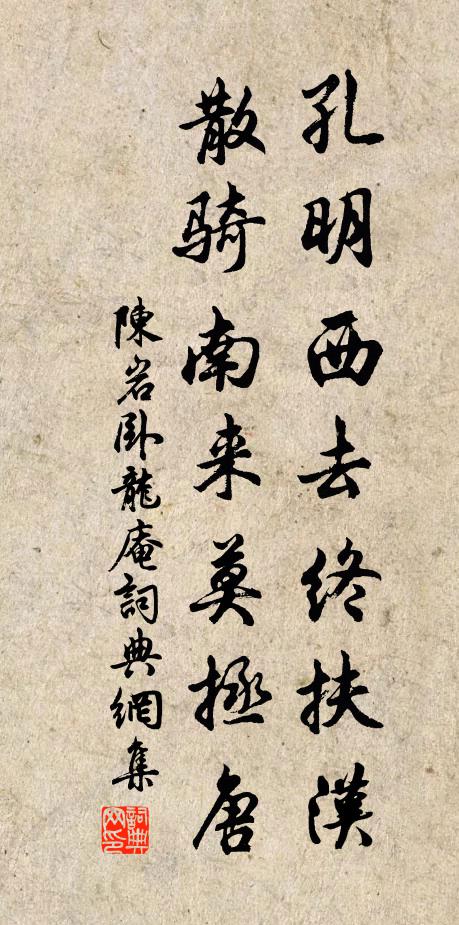 孔明西去终扶漢
散骑南来莫拯唐
陳岩卧龍庵詞典網集
詞典
网印